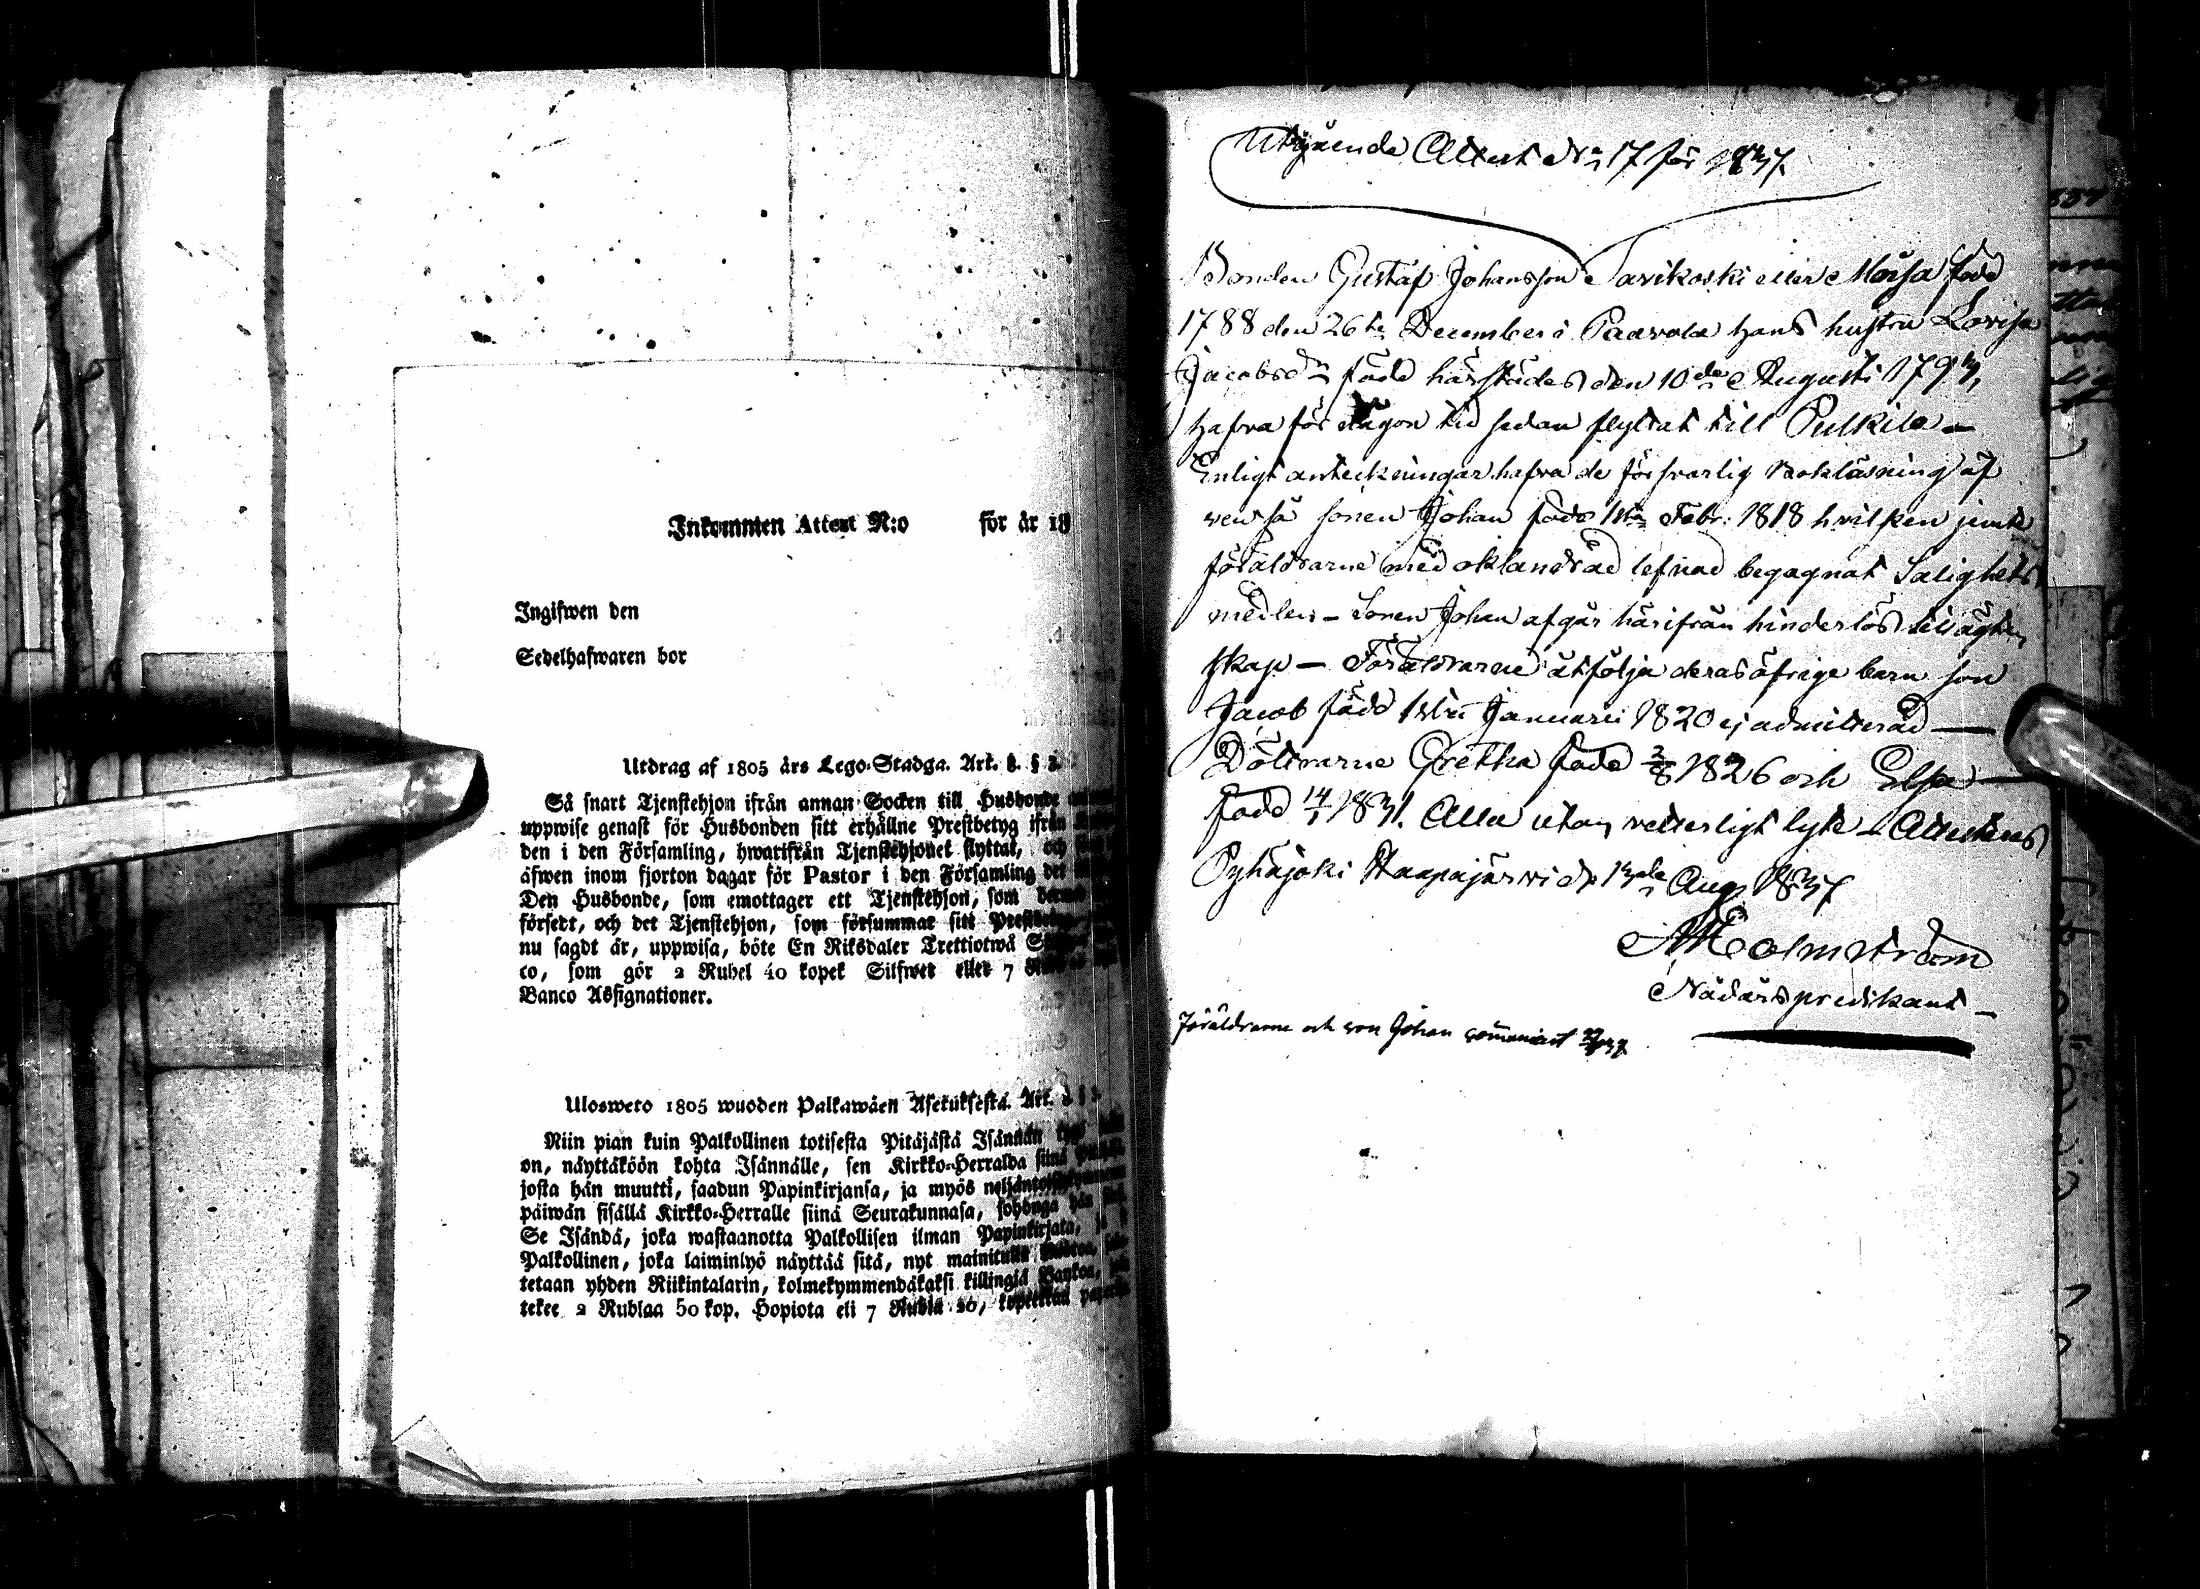 Inkommen Attest N:o för år 18
Ingifwen den
Sedelhafwaren bor
Utdrag af 1805 års Lego-Stadga. Art. §
Så snart Tjenstehjon ifrån annan Socken till Husbonde
uppwise genast för Husbonden sitt erhållne Prestbetyg ifrån
den i den Församling, hwarifrån Tjenstehjonet flyttat, och
äfwen inom fjorton dagar för Pastor i den Församling det
Den Husbonde, som emottager ett Tjenstehjon, som
försedt, och det Tjenstehjon, som försummar sitt
nu sagdt är, uppwisa, böte En Riksdaler Trettiotwå
co, som gör 2 Rubel 40 kopek Silfwer eller 7
Banco Assignationer.
Ulosweto 1805 wuoden Palkawäen Asetuksesta. Art.
Niin pian kuin Palkollinen toisesta Pitäjästä Isännän
on, näyttäköön kohta Isännälle, sen Kirkko-Herralda siinä
josta hän muutti, saadun Papinkirjansa, ja myös
päiwän sisällä Kirkko-Herralle siinä Seurakunnasa, hän
Se Isändä, joka wastaanotta Palkollisen ilman Papinkirjata,
Palkollinen, joka laiminlyö näyttää sitä, nyt mainitulla
tetaan yhden Riikintalarin, kolmekymmendäkaksi killingiä Bankoa,
tekee 2 Rublaa 50 kop. Hopiota eli 7 Rubla
Utgående Attest No 17 för 1837.
Bonden Gustaf Johansson Savikoski eller Moisa född
1788 den 26te December i Paavola hans hustru Lovisa
Jacobsdr född härstädes den 10de Augusti 1793,
hafva för någon tid sedan flyttat till Pulkila —
Enligt anteckningar hafva de försvarlig bokläsning äf
ven så sonen Johan född 1sta Febr. 1818 hvilken jemte
föräldrarne med oklandrad lefnad begagnat Salighets
medlen – Sonen Johan afgår härifrån hinderlös till ägten
skap — Föräldrarne åtfölja deras öfrige barn son
Jacob född 1sta Januarii 1820 ej admitterad —
Döttrarne Gretha född 2/8 1826 och Elsa —
född 14/1 1831. Alla utan vetterligt lyte – Attesteras
Pyhäjoki Haapajärvi d. 13de Aug 1837
Holmström
Nådårspredikant —
Föräldrarne och son Johan communicerat